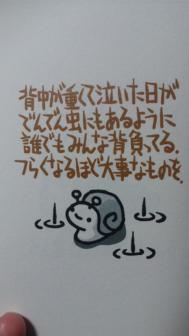 背中が重くて泣いた日が
でんでん虫にもあるように
誰でもみんな背負ってる.
つらくなるほど大事なものを.